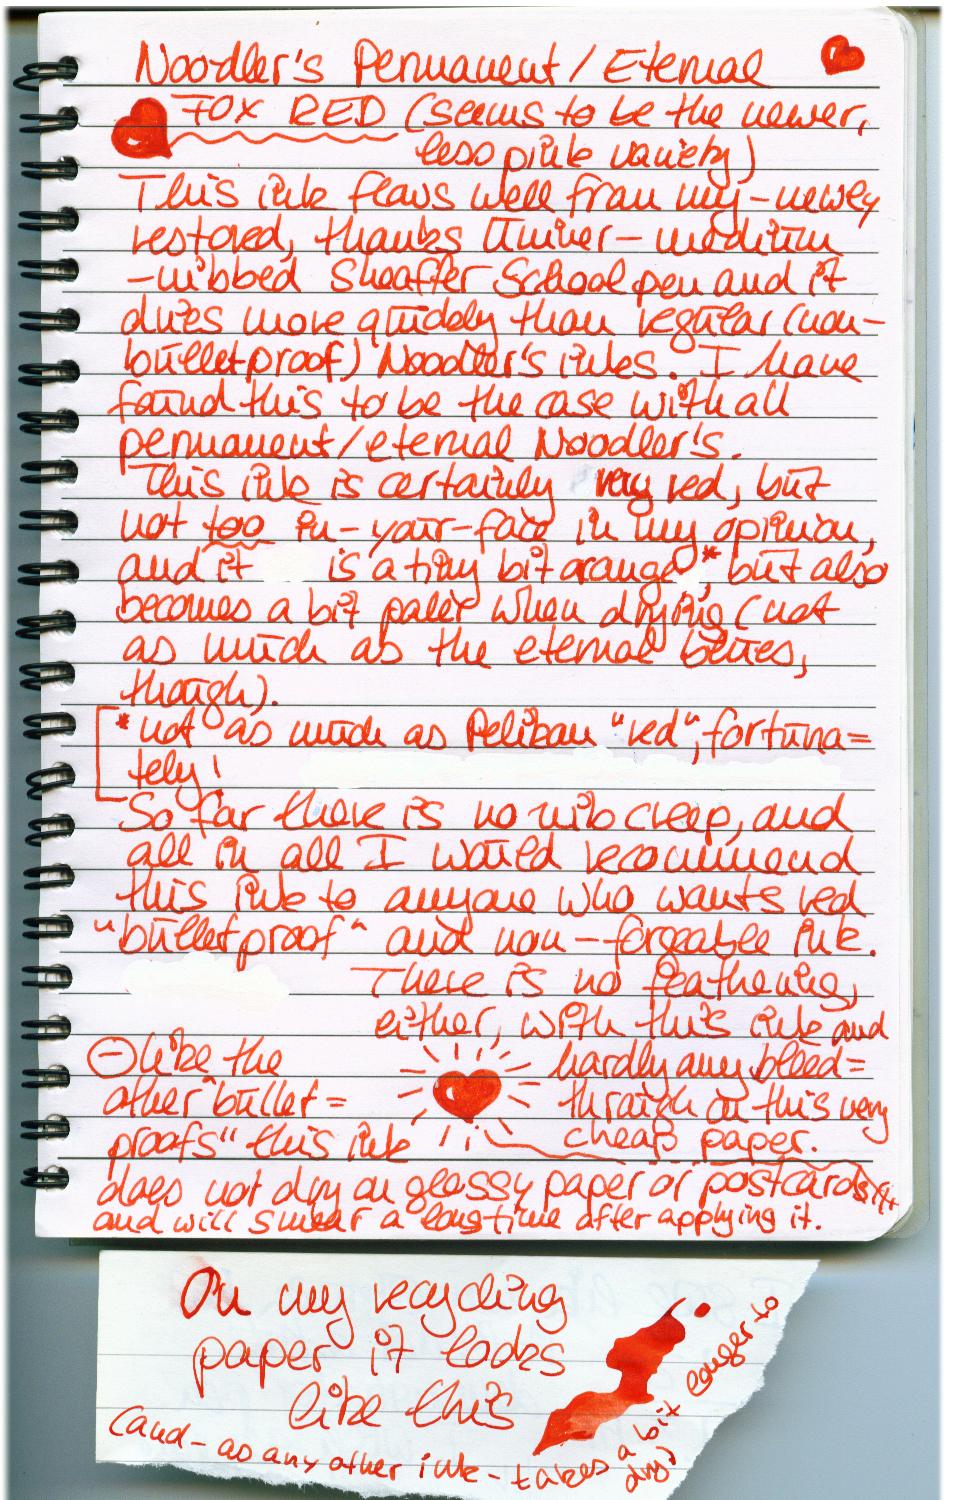 Noodler's Permanent / Eternal
FOX RED (seems to be the newer,
less pink variety)
This ink flows well from my - newly
restored, thanks
- medium
-nibbed Sheaffer School pen and it
dries more quickly than regular (non-
bulletproof) Noodler's inks. I have
found this to be the case with all
permanent/eternal Noodler's.
This ink is certainly very red, but
not too in-your-face in my opinion,
and it is a tiny bit orange*, but also
becomes a bit paler when drying (not
as much as the eternal blues,
though).
* not as much as Pelikan "red", fortuna=
tely!
So far there is no nib creep, and
all in all I would recommend
this ink to anyone who wants red
"bulletproof" and non-forgeable ink.
There is no feathering,
either, with this ink and
hardly any bleed=
through on this very
cheap paper.
⊖ like the
other "bullet=
proofs" this ink
does not dry on glossy paper or postcards
and will smear a long time after applying it.
On my recycling
paper it looks
like this
(and - as any other ink - takes a bit longer to
dry)